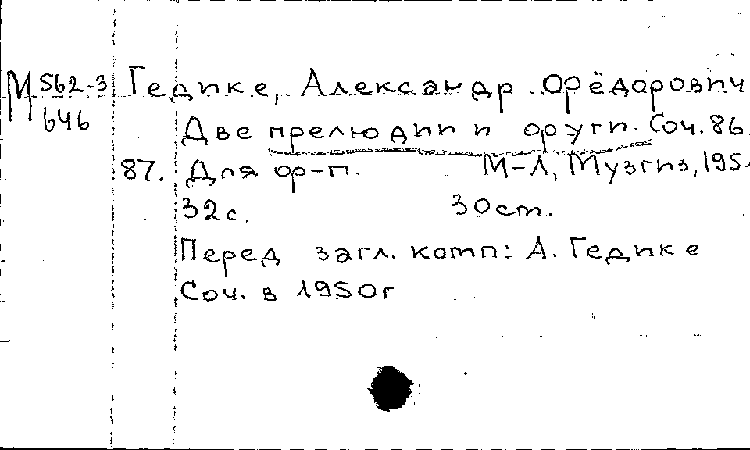 М 562-3 Гедике, Александр Фёдорович
646 Две прелюдии и фуги. Соч. 86.
87. Для ф-п. М-Л, Музгиз, 195
32с. 30cm.
Перед загл. комп: А. Гедике
Соч. в 1950г